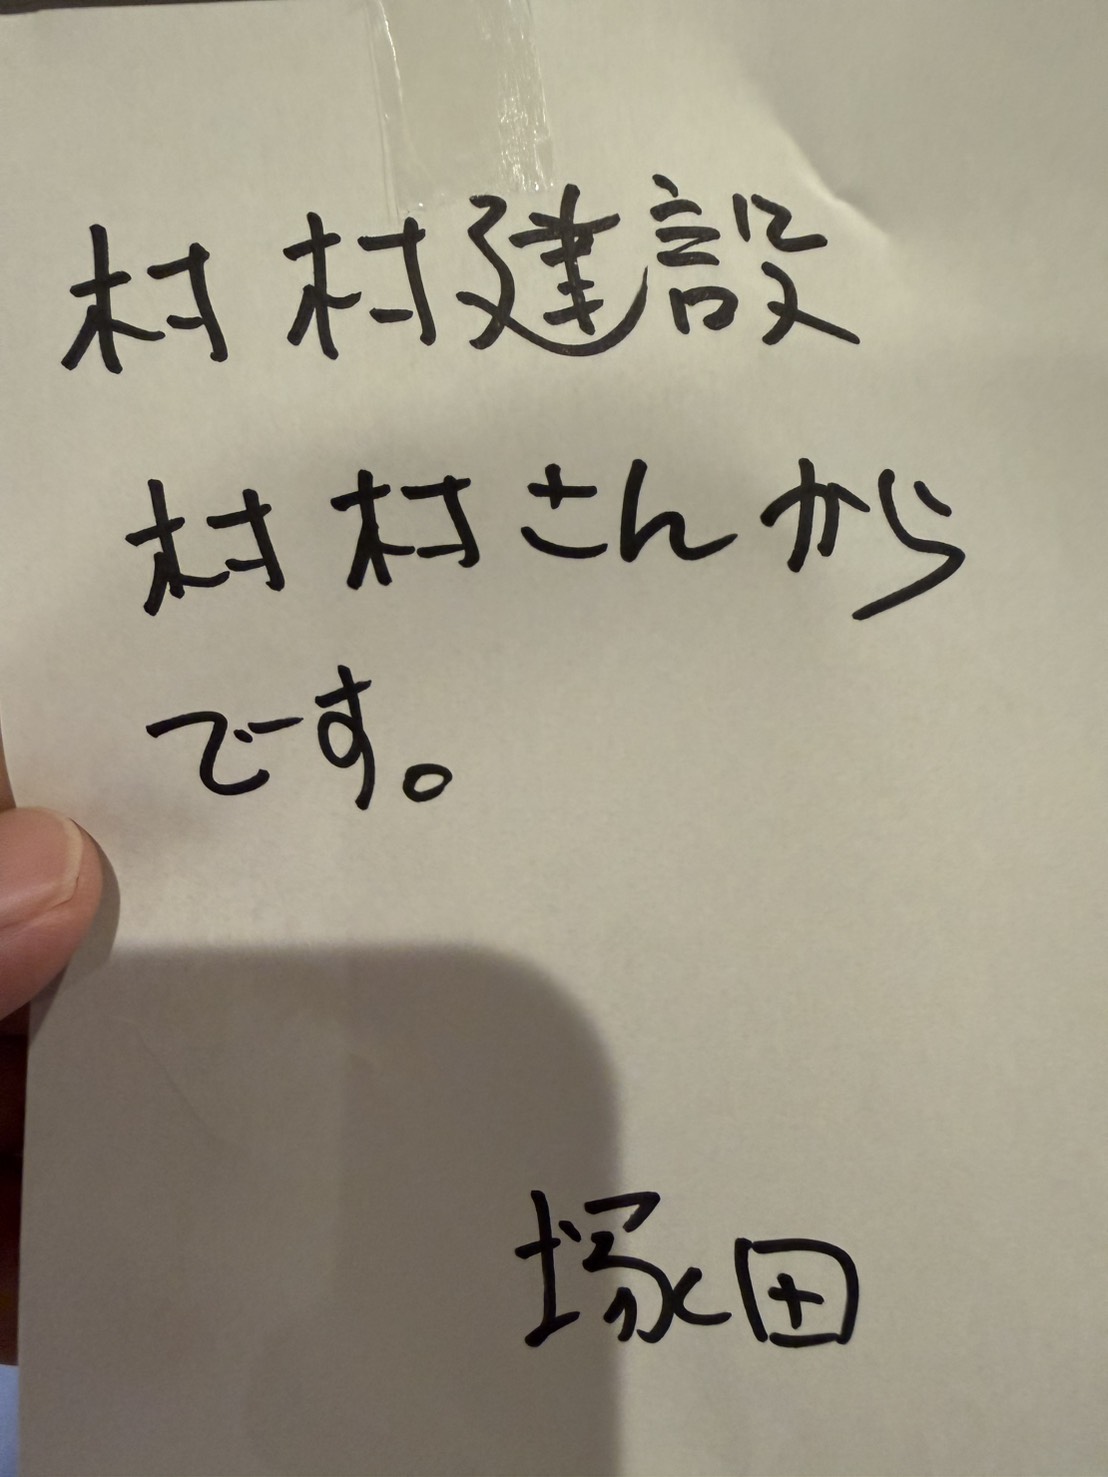 村村建設
村村さんから
でーす。
塚田